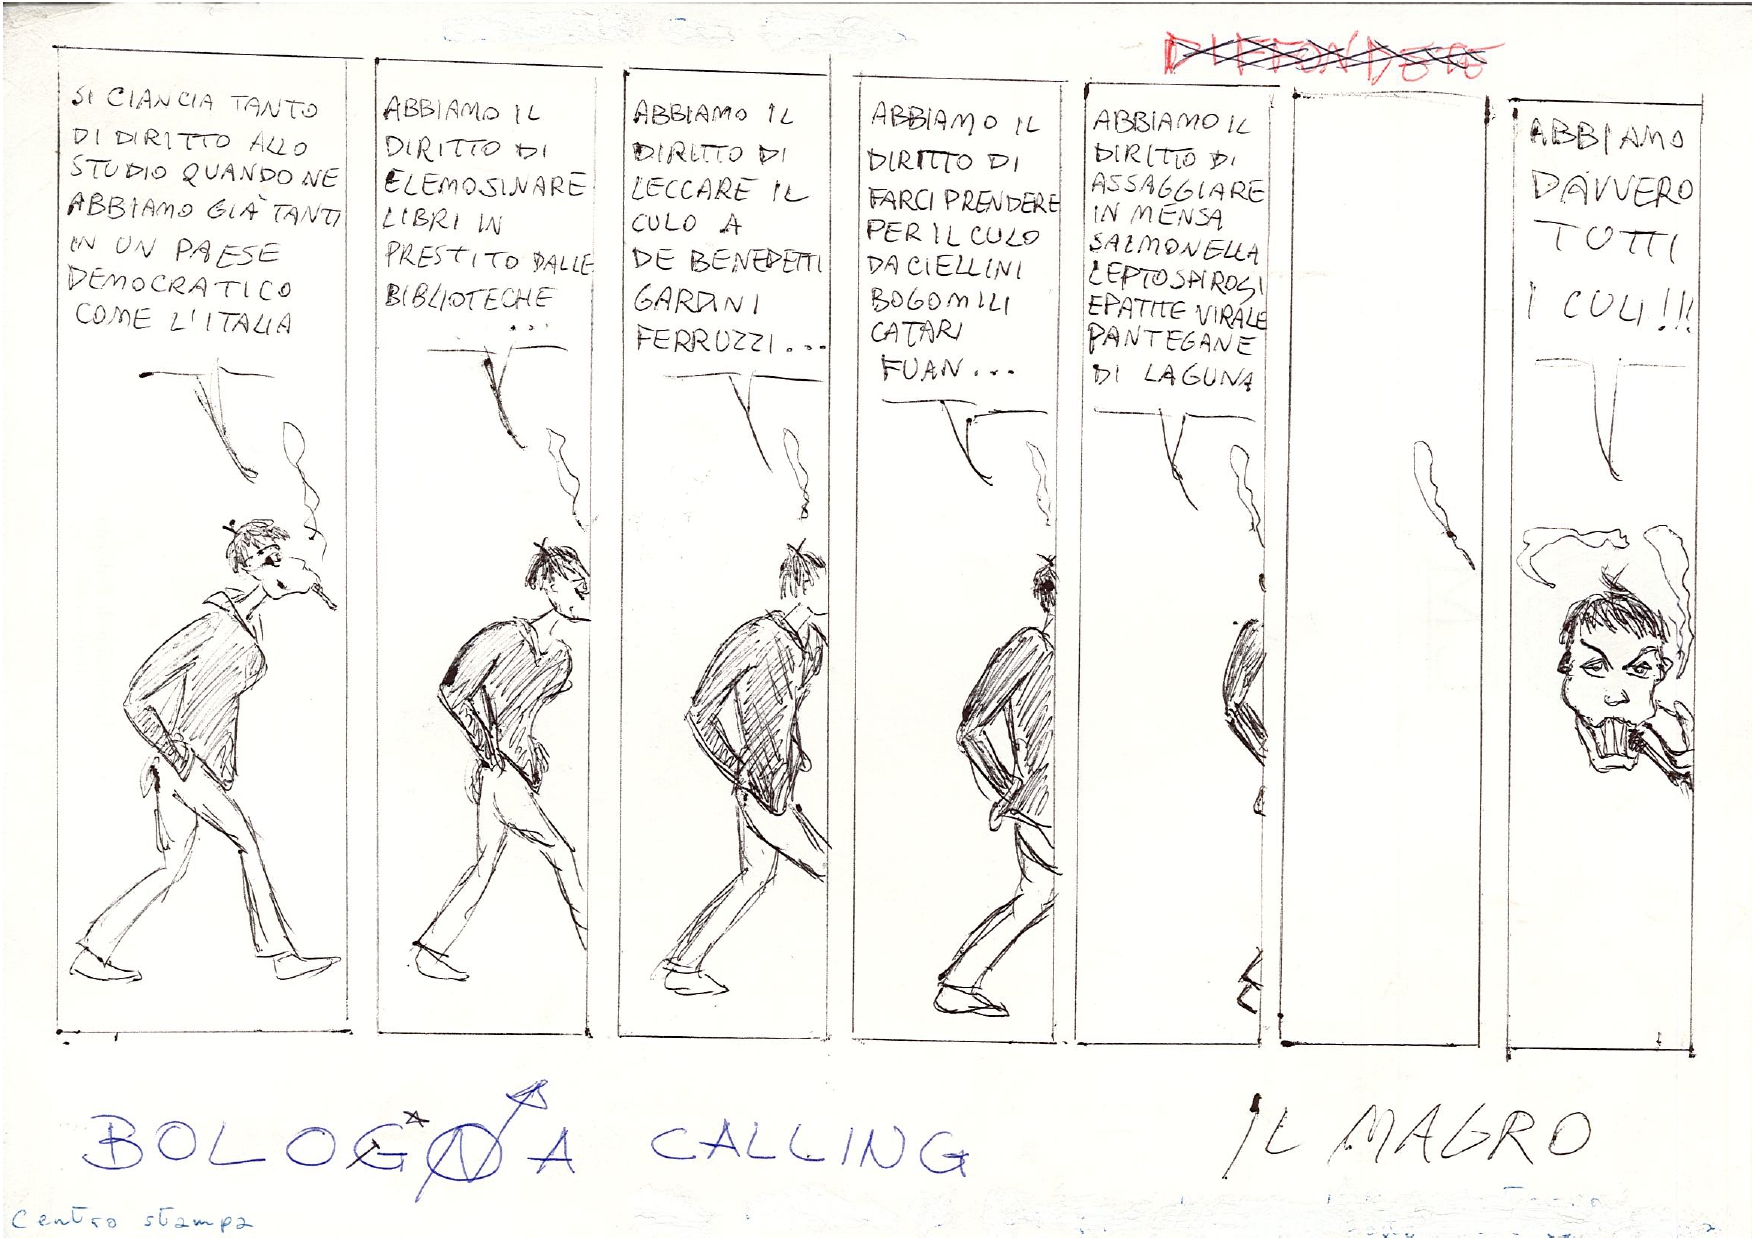 DIFFONDETE
SI CIANCIA TANTO
DI DIRITTO ALLO
STUDIO QUANDO NE
ABBIAMO GIÀ TANTI
IN UN PAESE
DEMOCRATICO
COME L'ITALIA
ABBIAMO IL
DIRITTO DI
ELEMOSINARE
LIBRI IN
PRESTITO DALLE
BIBLIOTECHE
...
ABBIAMO IL
DIRITTO DI
LECCARE IL
CULO A
DE BENEDETTI
GARDINI
FERRUZZI...
ABBIAMO IL
DIRITTO DI
FARCI PRENDERE
PER IL CULO
DA CIELLINI
BOGOMILI
CATARI
FUAN...
ABBIAMO IL
DIRITTO DI
ASSAGGIARE
IN MENSA
SALMONELLA
LEPTOSPIROSI
EPATITE VIRALE
PANTEGANE
DI LAGUNA
ABBIAMO
DAVVERO
TUTTI
I CULI!!!
BOLOGNA CALLING
IL MAGRO
Centro stampa